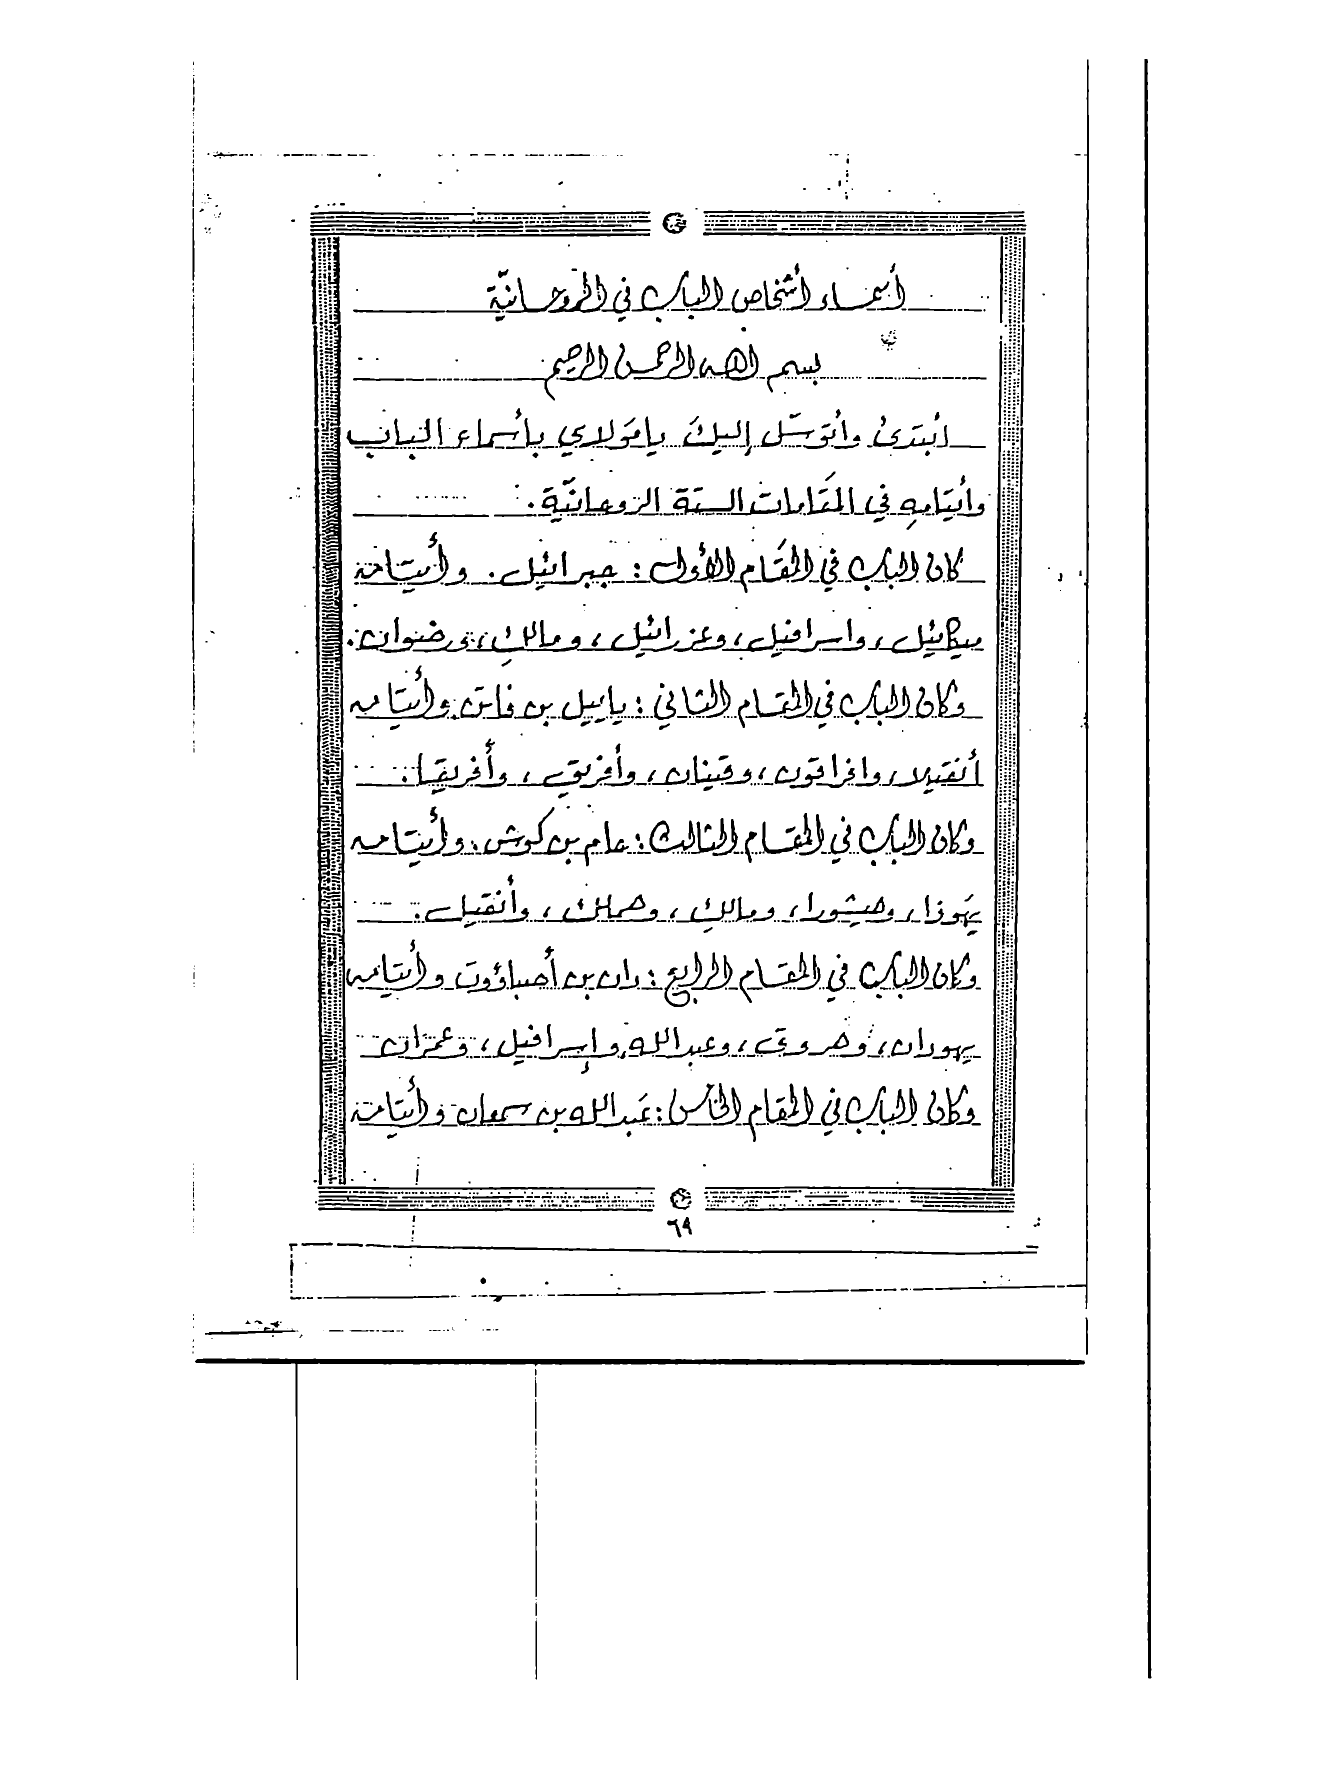 أسماء أشخاص الباب في الروحانيّة
بسم الله الرحمن الرحيم
ابتدئ وأتوسّل إليك يا مَولاي بأسماء الباب
وأيتامِهِ في المقَامات الستة الروحانيّة.
كان الباب في المقَام الأول: جبرائيل. وأيتامه
ميكائيل، واسرافيل، وعزرائيل، ومالك، ورضوان.
وكان الباب في المقام الثاني: ياييل بن فاتن وأيتامه
وقينان، وأفريقا.
وكان الباب في المقام الثالث: حام بن كوش: وأيتامه
يهوذا، وهيشورا، ومالك، وأنقيل.
وكان الباب في المقام الرابع: دان بن أصباؤوت وأيتامه
وعبدالله، وإسرافيل، وعمران
وكان الباب في المقام الخامس: عَبدالله بن سمعان وأيتامه
٦٩